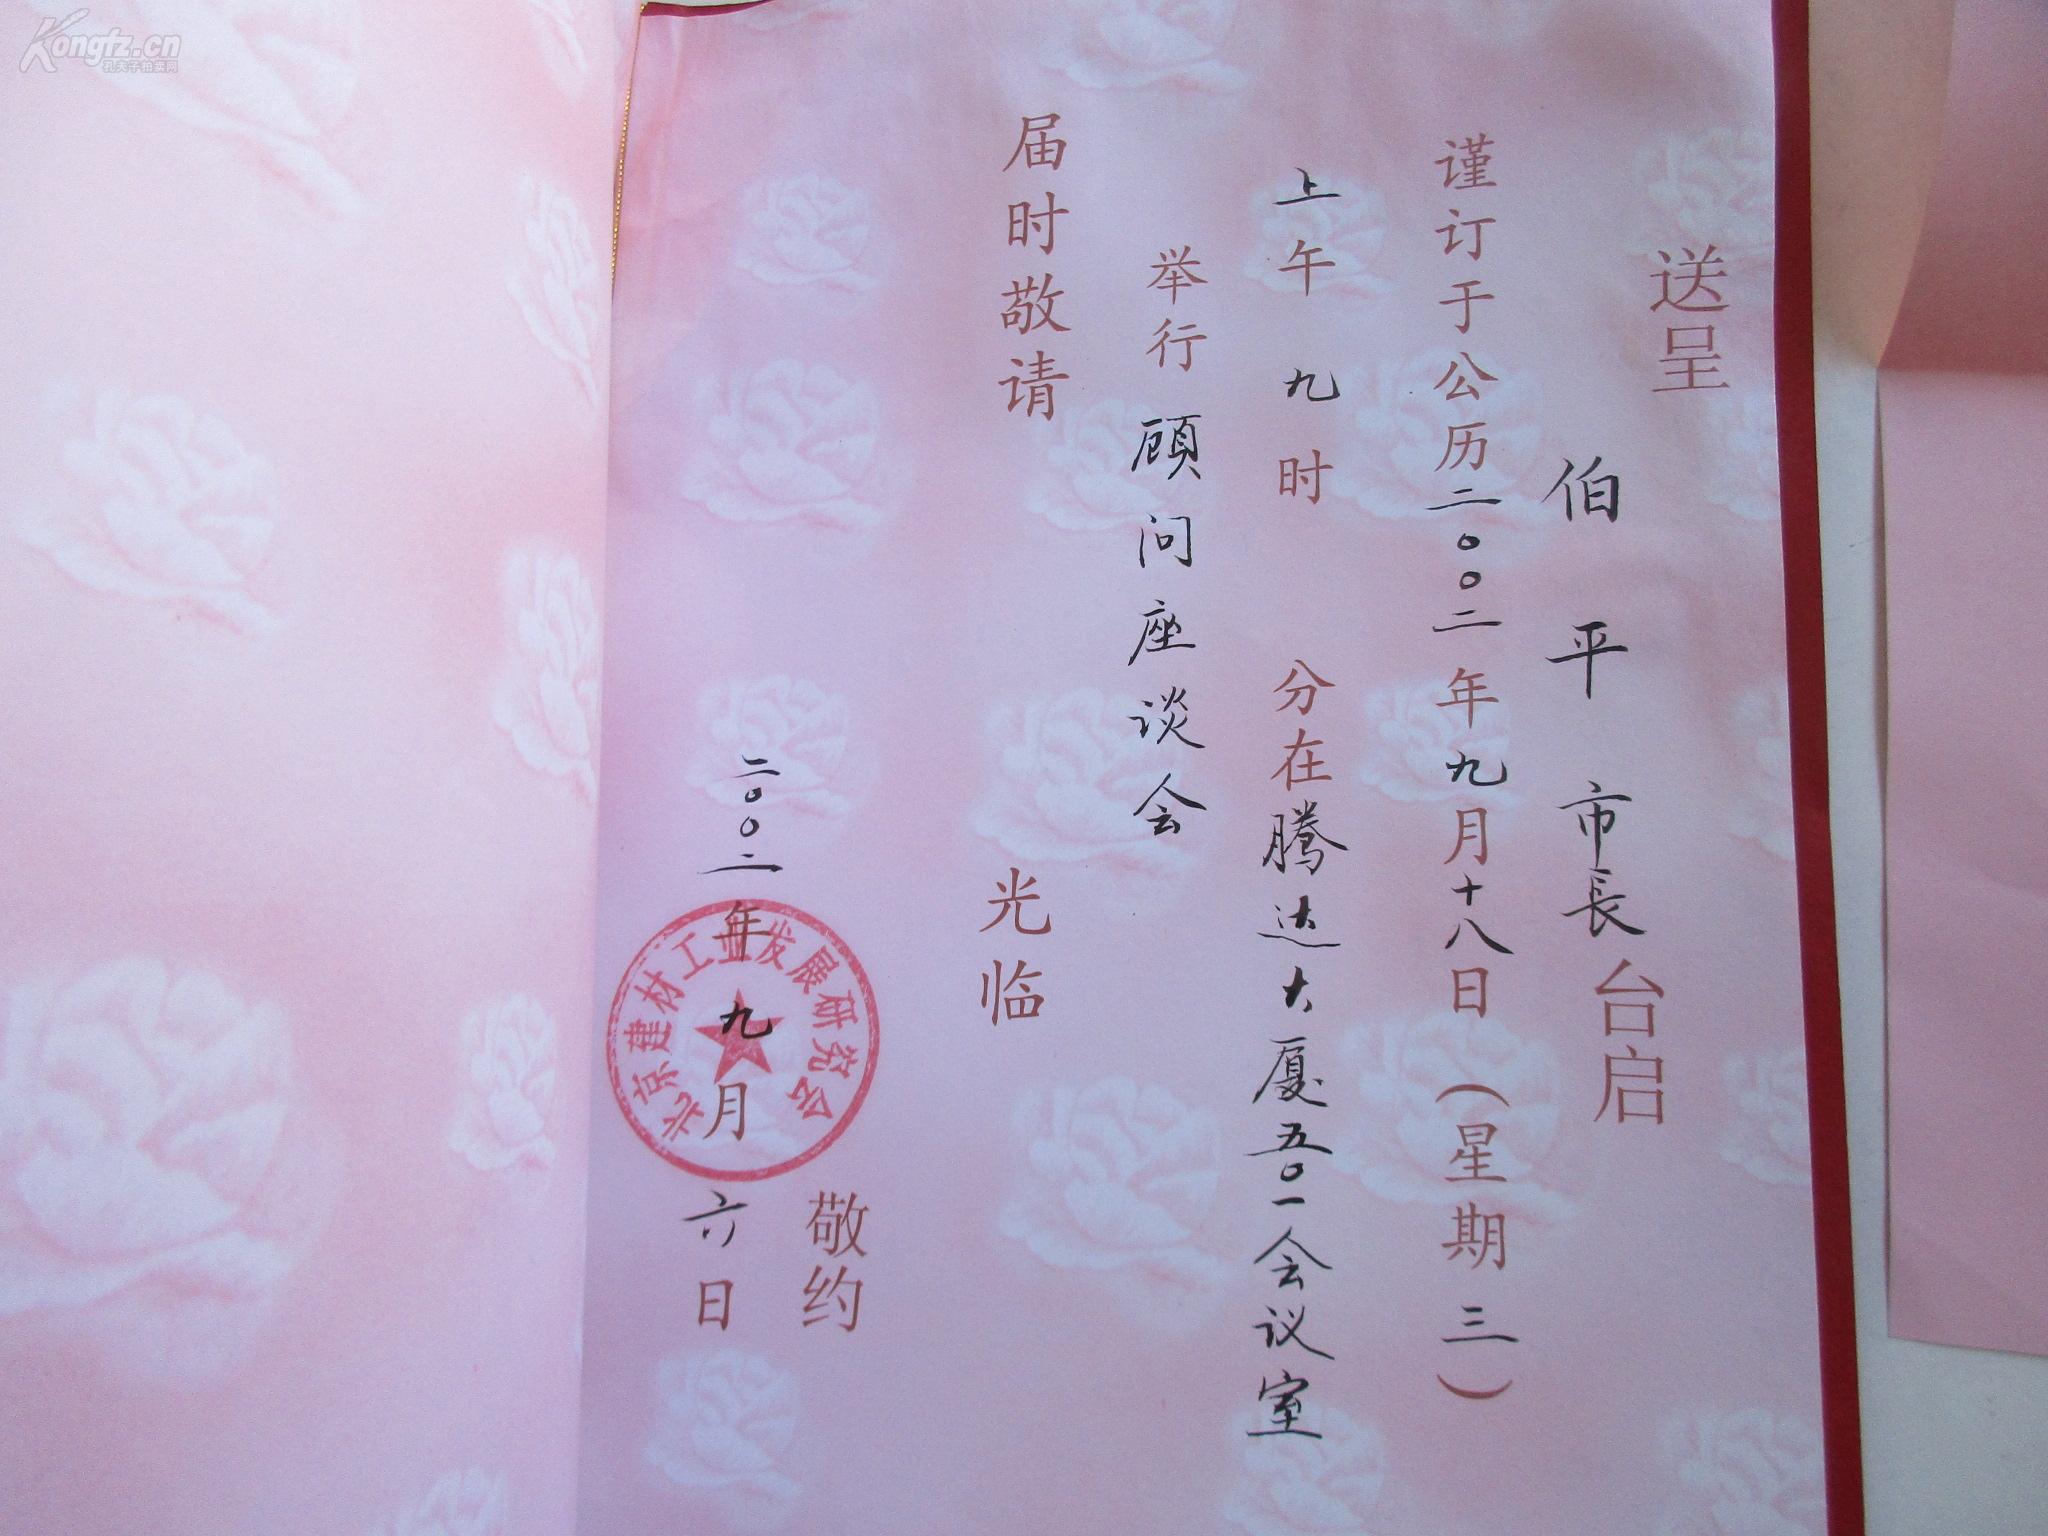 送呈
伯平市長台启
谨订于公历二〇〇二年九月十八日(星期三)
上午九时 分在腾达大厦五〇一会议室
举行顾问座谈会
届时敬请
光临
敬约
二〇〇二年九月六日
北京建材工业发展研究会
Kongfz.cn
孔夫子拍卖网